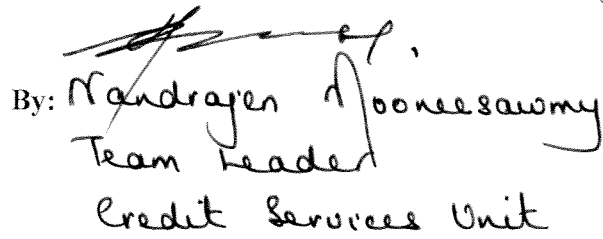 By: Nandrajen Mooneesawmy
Team Leader
Credit Services Unit